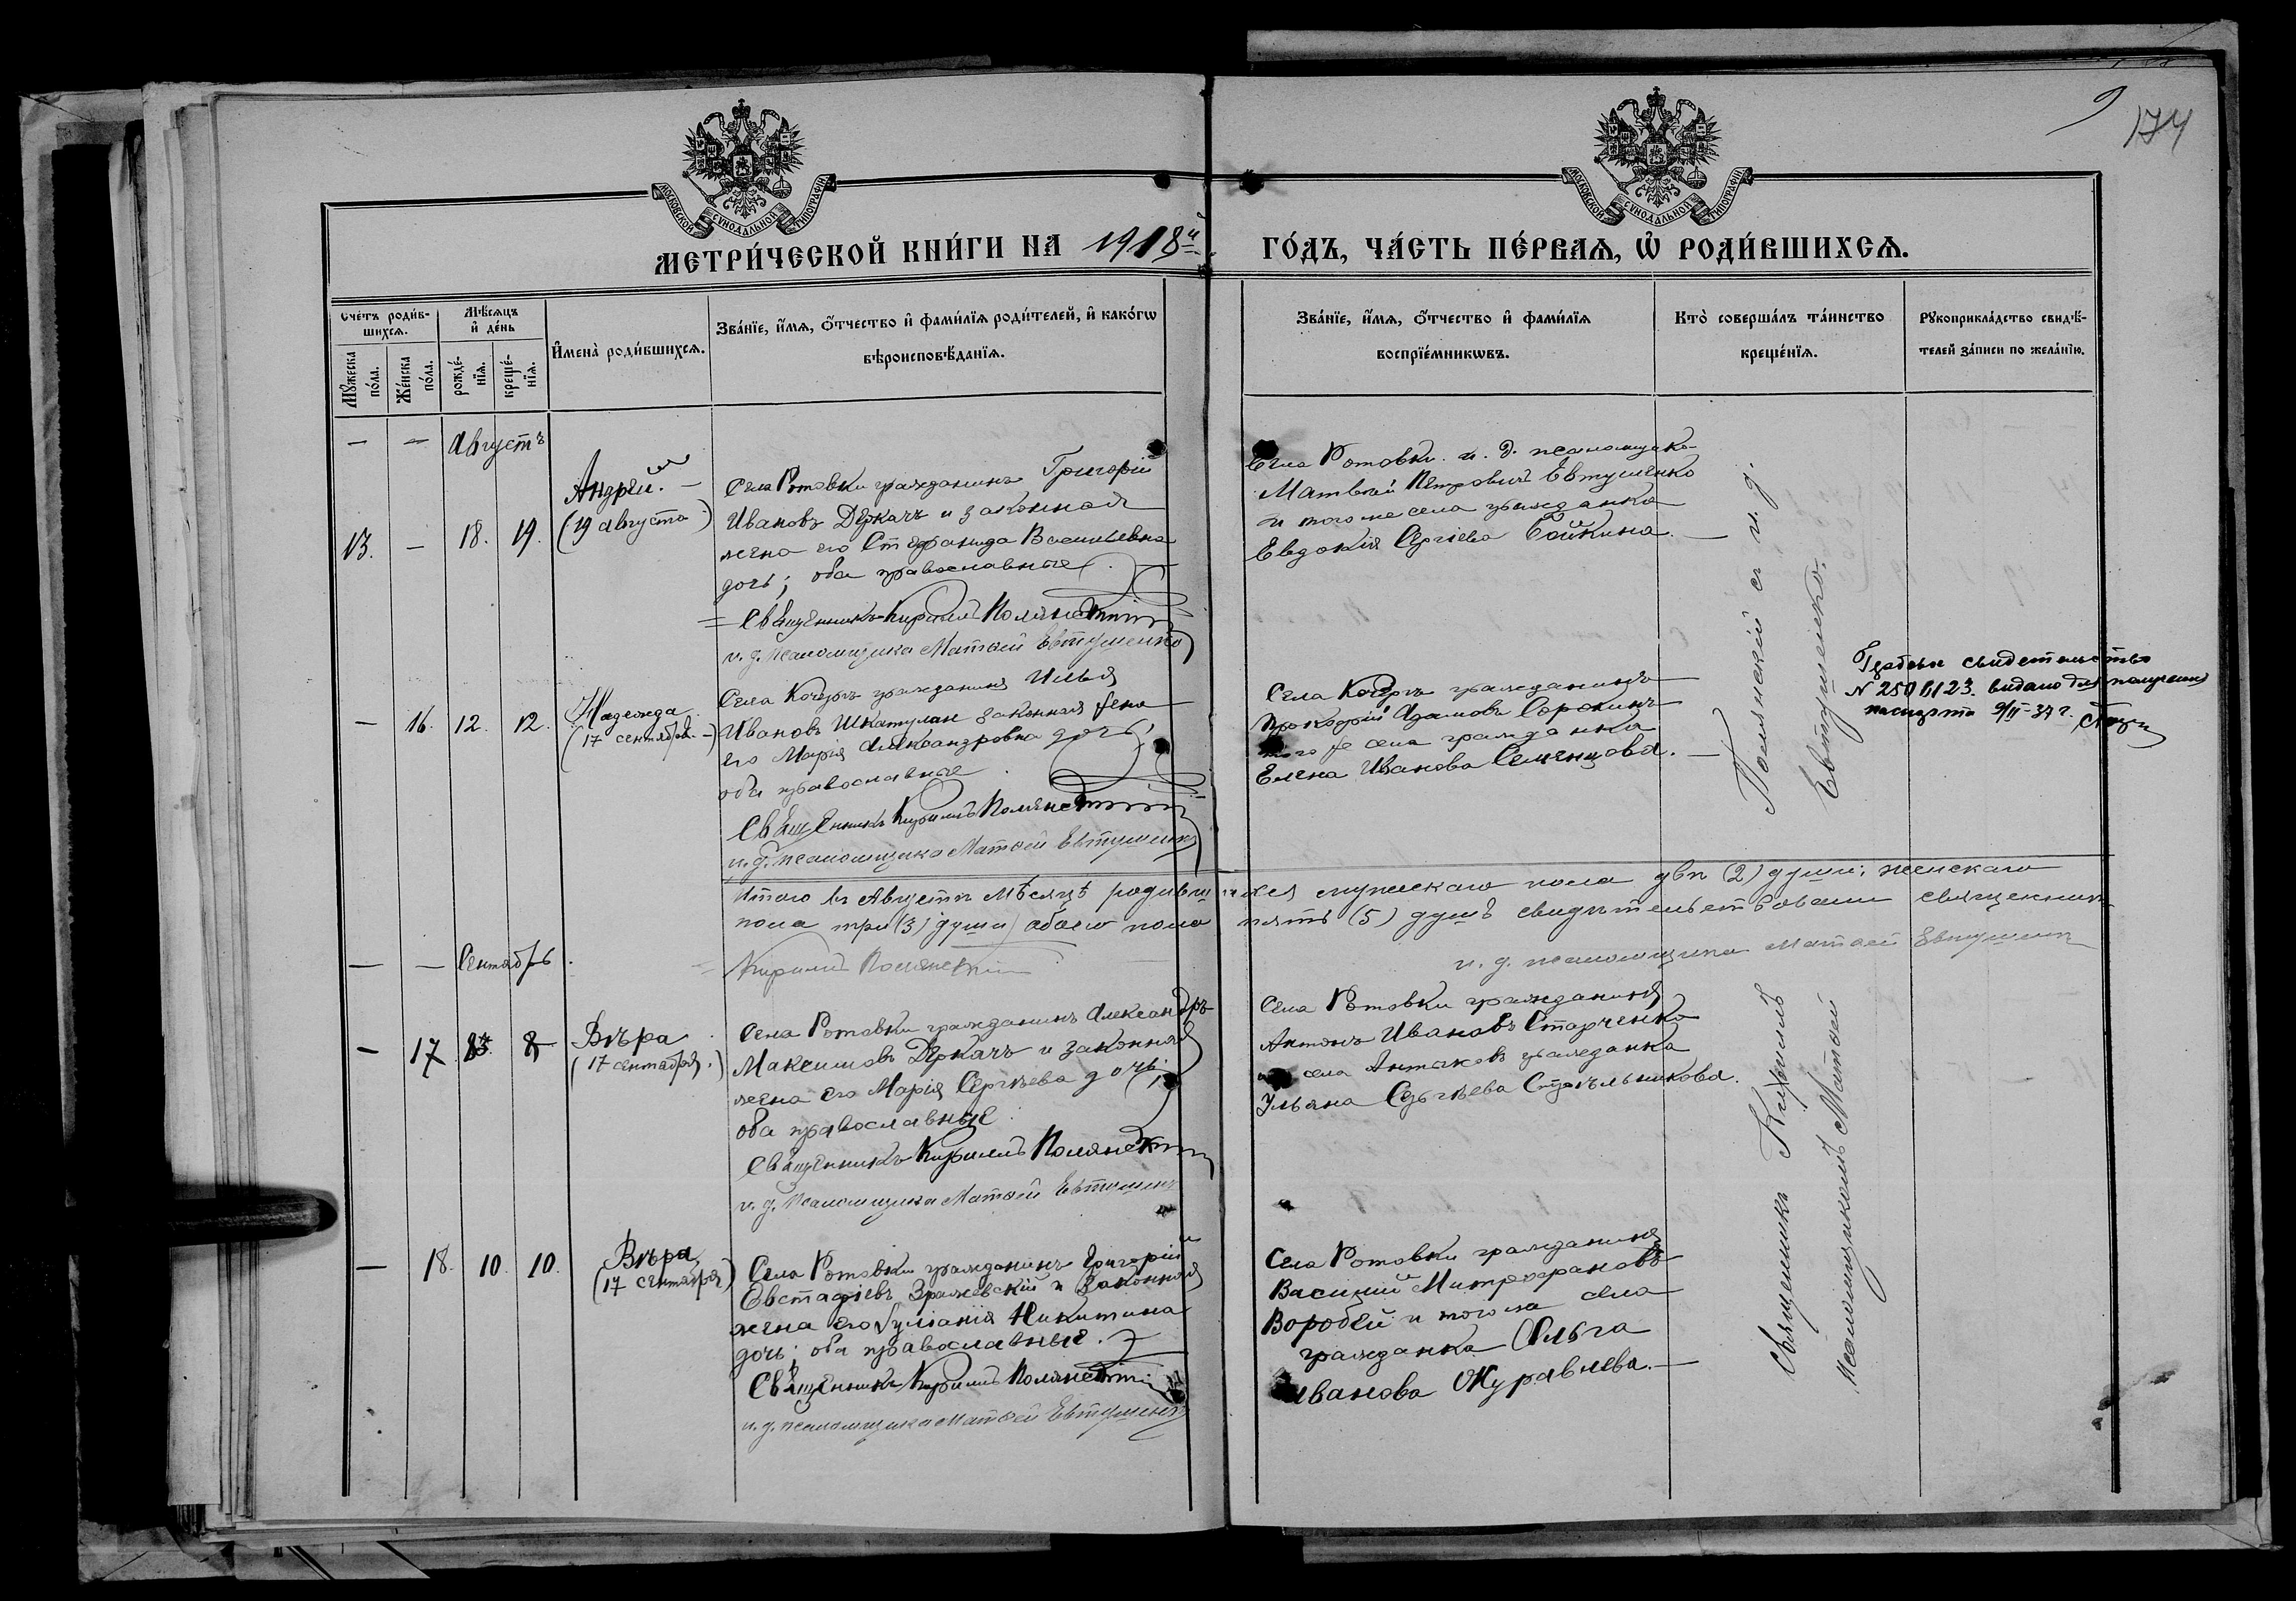 9
174
МОСКОВСКОЙ СѴНОДАЛЬНОЙ ТИПОГРАФІИ
МОСКОВСКОЙ СѴНОДАЛЬНОЙ ТИПОГРАФІИ
МЕТРИ́ЧЕСКОЙ КНИ́ГИ НА 1918й ГО́ДЪ, ЧА́СТЬ ПЕ́РВАЯ, Ѡ҆ РОДИ́ВШИХСЯ.
Счетъ роди́в-
шихся.
Мѣсяцъ
и҆ де́нь
Мꙋжеска по́ла.
Же́нска по́ла.
рожде́-
нїя.
креще́-
нїя.
И҆мена̀ роди́вшихся.
Зва́нїе, и҆́мя, ѻ҆́тчество и҆ фами́лїя роди́телей, и҆ како́гѡ
вѣроисповѣ́данїя.
Зва́нїе, и҆́мя, ѻ҆́тчество и҆ фами́лїя
воспрїе́мникѡвъ.
Кто̀ соверша́лъ та́инство
креще́нїя.
Рꙋкоприкла́дство свидѣ́-
телей за́писи по жела́нїю.
— — Августъ
13. — 18. 19.
Андрей. —
(19 августа)
Села Ротовки гражданинъ Григорій
Ивановъ Деркачъ и законная
жена его Стефанида Васильевна
дочь; оба православные.
Священникъ Кириллъ Полянскій
и. д. псаломщика Матѳей Евтушенко
Села Ротовки и. д. псаломщика
Матвѣй Петровичъ Евтушенко
и того же села гражданка
Евдокія Сергіева Бойкина. —
— 16. 12. 12.
Надежда
(17 сентября. —)
Села Кочергъ гражданинъ Илья
Ивановъ Шкатулан законная жена
его Марія Александровна дочь;
оба православные
Священникъ Кириллъ Полянскій
и. д. псаломщика Матѳей Евтушенко
Села Кочергъ гражданинъ
Прокофій Адамовъ Сорокинъ
того же села гражданка
Елена Иванова Семенцова. —
Полянскій съ и. д.
Евтушенко.
свидетельство
N 250 выдано для получения
паспорта 9/II-37 г.
Итого въ Августѣ мѣсяцѣ родившихся мужескаго пола двѣ (2) души; женскаго
пола три (3) души обоего пола пять (5) душъ свидѣтельствовали священникъ
Кириллъ Полянскій
и. д. псаломщика Матѳей Евтушенко
— — Сентябрь.
— 17 8
Вѣра
(17 сентября.)
Села Ротовки гражданинъ Александръ
Максимовъ Деркачъ и законная
жена его Марія Сергѣева дочь;
оба православные
Священникъ Кириллъ Полянскій
и. д. псаломщика Матѳей Евтушенко
Села Ротовки гражданинъ
Антонъ Ивановъ Старченко
села гражданка
Ульяна Сергѣева Стрѣльникова.
— 18. 10. 10.
Вѣра
(17 сентября)
Села Ротовки гражданинъ Григорій
Евстафіевъ Зражевскій и законная
жена его Іуліанія Никитина
дочь; оба православные.
Священникъ Кириллъ Полянскій
и. д. псаломщика Матѳей Евтушенко
Села Ротовки гражданинъ
Василій Митрофановъ
Воробей и того же села
гражданка Ольга
Иванова Журавлева. —
Священникъ Кириллъ
псаломщикомъ Матѳей